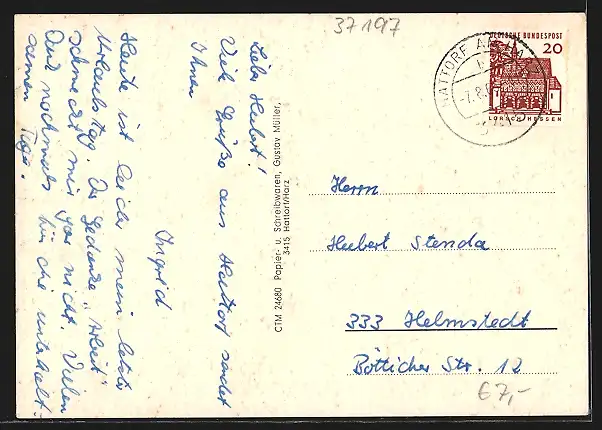 37197
DEUTSCHE BUNDESPOST
20
LORSCH/HESSEN
HATTORF AM
-7.8.6
Liebe Hubert!
Viele Grüße aus Hattorf sendet
Ihnen
Ingrid
Heute ist leider mein letzter
Urlaubstag. Der Gedanke "Arbeit"
schmeckt mir gar nicht. Vielen
Dank nochmals für die unterhalt-
samen Tage.
CTM 24680 Papier- u. Schreibwaren, Gustav Müller,
3415 Hattorf/Harz
Herrn
Hubert Stenda
333 Helmstedt
Bötticher Str. 12
67,-